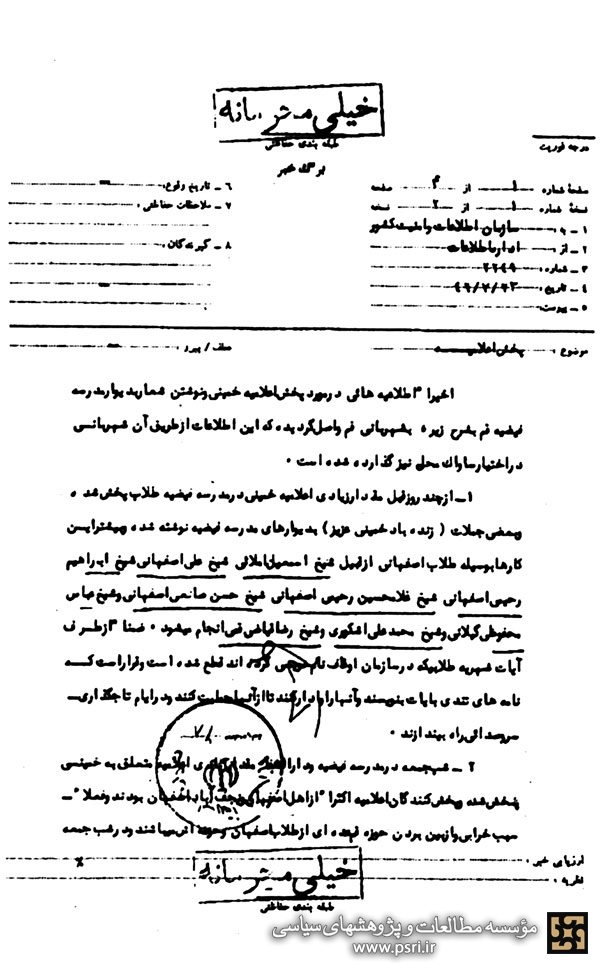 خیلی محرمانه
طبقه بندی حفاظتی
برگ خبر
درجه فوریت
صفحه شماره ۱ از ۳ صفحه
نسخه شماره ۱ از ۲ نسخه
۱ - به: سازمان اطلاعات و امنیت کشور
۲ - از: اداره اطلاعات
۳ - شماره:
۴ - تاریخ: ۴۶/۷/۲۳
۵ - پیوست:
۶ - تاریخ وقوع:
۷ - ملاحظات حفاظتی:
۸ - گیرندگان:
موضوع: پخش اعلامیه
عطف / پیرو:
اخیرا" اطلاعیه هائی در مورد پخش اعلامیه خمینی و نوشتن شعار بدیوار مدرسه
فیضیه قم بشرح زیر به شهربانی قم واصل گردیده که این اطلاعات از طریق آن شهربانی
در اختیار ساواک محل نیز گذارده شده است.
۱ - از چند روز قبل مقدار زیادی اعلامیه خمینی در مدرسه فیضیه طلاب پخش شده
وبعضی جملات (زنده باد خمینی عزیز) بدیوارهای مدرسه فیضیه نوشته شده وبیشتر این
کارها بوسیله طلاب اصفهانی از قبیل شیخ اسمعیل املائی شیخ علی اصفهانی شیخ ابراهیم
رحیمی اصفهانی شیخ غلامحسین رحیمی اصفهانی شیخ حسن صانعی اصفهانی وشیخ عباس
محفوظی گیلانی وشیخ محمد علی اشکوری وشیخ رضا قمی انجام میشود. ضمنا" از طرف
آیات شهریه طلابیکه در سازمان اوقاف نام کرده اند قطع شده است وقرار است که
نامه های تندی بایات بنویسند وآنها را وادار کنند تا از آنها حمایت کنند ودر ایام تاجگذاری
سروصدائی براه بیندازند.
۲ - شب جمعه در مدرسه فیضیه ودارالشفا مقدار زیادی اعلامیه متعلق به خمینی
پخش شده وپخش کنندگان اعلامیه اکثرا" از اهل اصفهان ونجف آباد اصفهان بودند وفعلا"
سبب خرابی وازبین بردن حوزه عده ای از طلاب اصفهان میباشند ودر شب جمعه
ارزیابی خبر:
نظریه:
خیلی محرمانه
طبقه بندی حفاظتی
مؤسسه مطالعات و پژوهشهای سیاسی
www.psri.ir